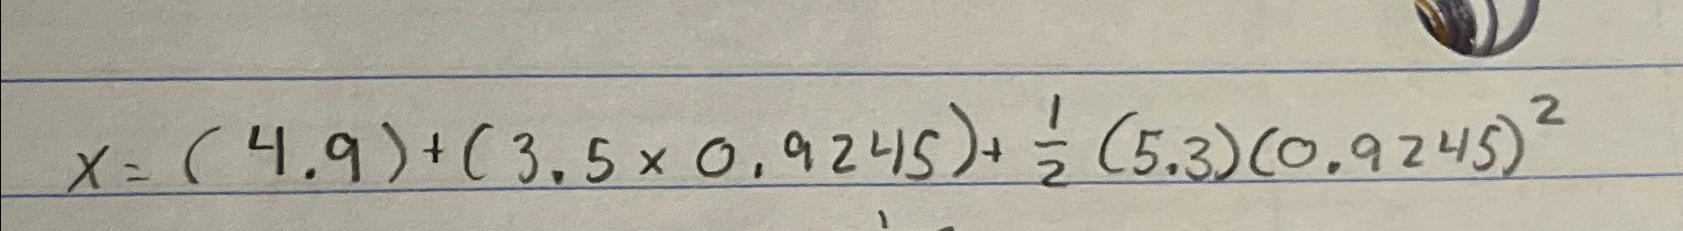 x = (4.9) + (3.5 × 0.9245) + 1/2 (5.3)(0.9245)²